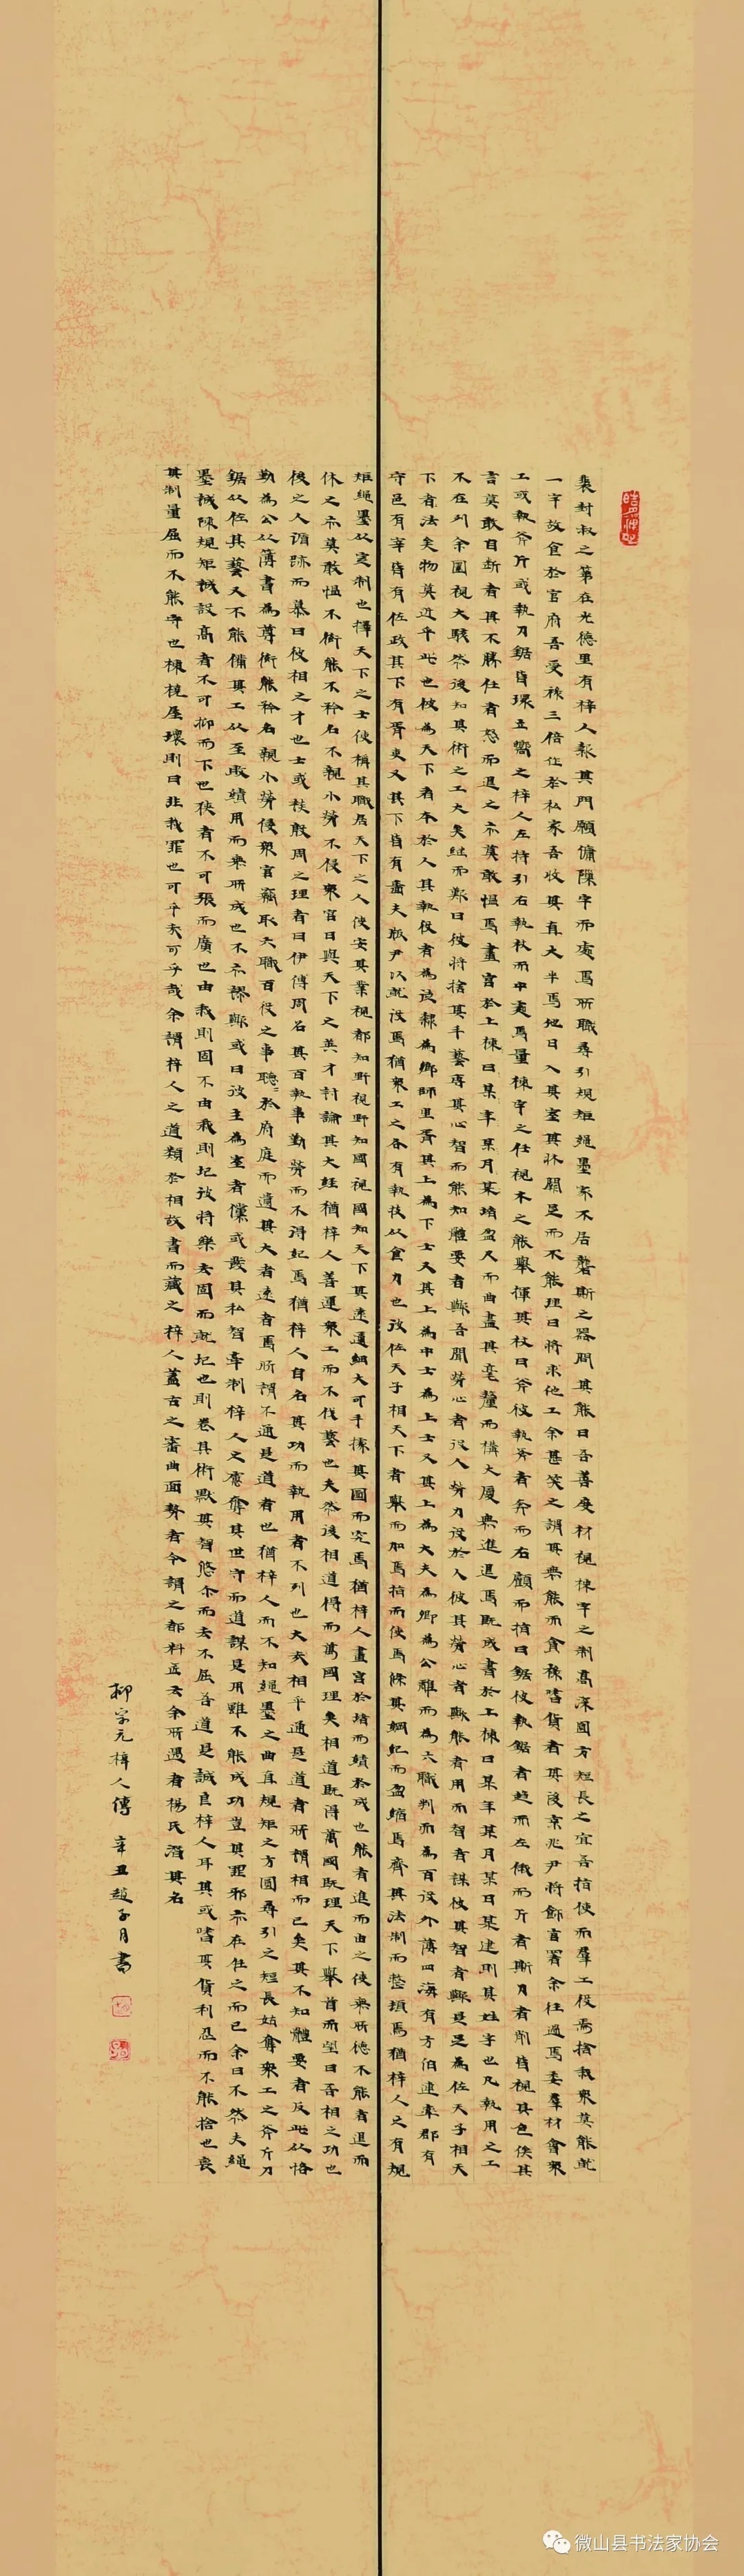 裴封叔之第在光德里有梓人款其門願傭隙宇而處焉所職尋引規矩繩墨家不居礱斲之器問其能曰吾善度材視棟宇之制高深圓方短長之宜吾指使而羣工役焉捨我衆莫能就
一宇故食於官府吾受祿三倍作於私家吾收其直大半焉他日入其室其牀闕足而不能理曰將求他工余甚笑之謂其無能而貪祿嗜貨者其後京兆尹將飾官署余往過焉委羣材會衆
工或執斧斤或執刀鋸皆環立嚮之梓人左持引右執杖而中處焉量棟宇之任視木之能舉揮其杖曰斧彼執斧者奔而右顧而指曰鋸彼執鋸者趨而左俄而斤者斲刀者削皆視其色俟其
言莫敢自斷者其不勝任者怒而退之亦莫敢慍焉畫宮於上棟曰某年某月某堵盈尺而曲盡其毫釐而構大廈無進退焉既成書於上棟曰某年某月某日某建則其姓字也凡執用之工
不在列余圜視大駭然後知其術之工大矣繼而歎曰彼將捨其手藝專其心智而能知體要者歟吾聞勞心者役人勞力役於人彼其勞心者歟能者用而智者謀彼其智者歟是足為佐天子相天
下者法矣物莫近乎此也彼為天下者本於人其執役者為徒隸為鄉師里胥其上為下士又其上為中士為上士又其上為大夫為卿為公離而為六職判而為百役外薄四海有方伯連率郡有
守邑有宰皆有佐政其下有胥吏又其下皆有嗇夫版尹以就役焉猶衆工之各有執技以食力也彼佐天子相天下者舉而加焉指而使焉條其綱紀而盈縮焉齊其法制而整頓焉猶梓人之有規
矩繩墨以定制也擇天下之士使稱其職居天下之人使安其業視都知野視野知國視國知天下其遠邇細大可手據其圖而究焉猶梓人畫宮於堵而績於成也能者進而由之使無所德不能者退而
休之亦莫敢慍不衒能不矜名不親小勞不侵衆官日與天下之英才討論其大經猶梓人善運衆工而不伐藝也夫然後相道得而萬國理矣相道既得萬國既理天下舉首而望曰吾相之功也
後之人循跡而慕曰彼相之才也士或談殷周之理者曰伊傅周召其百執事勤勞而不得紀焉猶梓人自名其功而執用者不列也大哉相乎通是道者所謂相而已矣其不知體要者反此以恪
勤為公以簿書為尊衒能矜名親小勞侵衆官竊取六職百役之事聽聽於府庭而遺其大者遠者焉所謂不通是道者也猶梓人而不知繩墨之曲直規矩之方圓尋引之短長姑奪衆工之斧斤刀
鋸以佐其藝又不能備其工以至敗績用而無所成也不亦謬歟或曰彼主為室者儻或發其私智牽制梓人之慮奪其世守而道謀是用雖不能成功豈其罪邪亦在任之而已余曰不然夫繩
墨誠陳規矩誠設高者不可抑而下也狹者不可張而廣也由我則固不由我則圮彼將樂去固而就圮也則卷其術默其智悠尔而去不屈吾道是誠良梓人耳其或嗜其貨利忍而不能捨也喪
其制量屈而不能守也棟橈屋壞則曰非我罪也可乎哉可乎哉余謂梓人之道類於相故書而藏之梓人蓋古之審曲面勢者今謂之都料匠云余所遇者楊氏潛其名
柳宗元梓人傳 辛丑趙子月書
微山县书法家协会